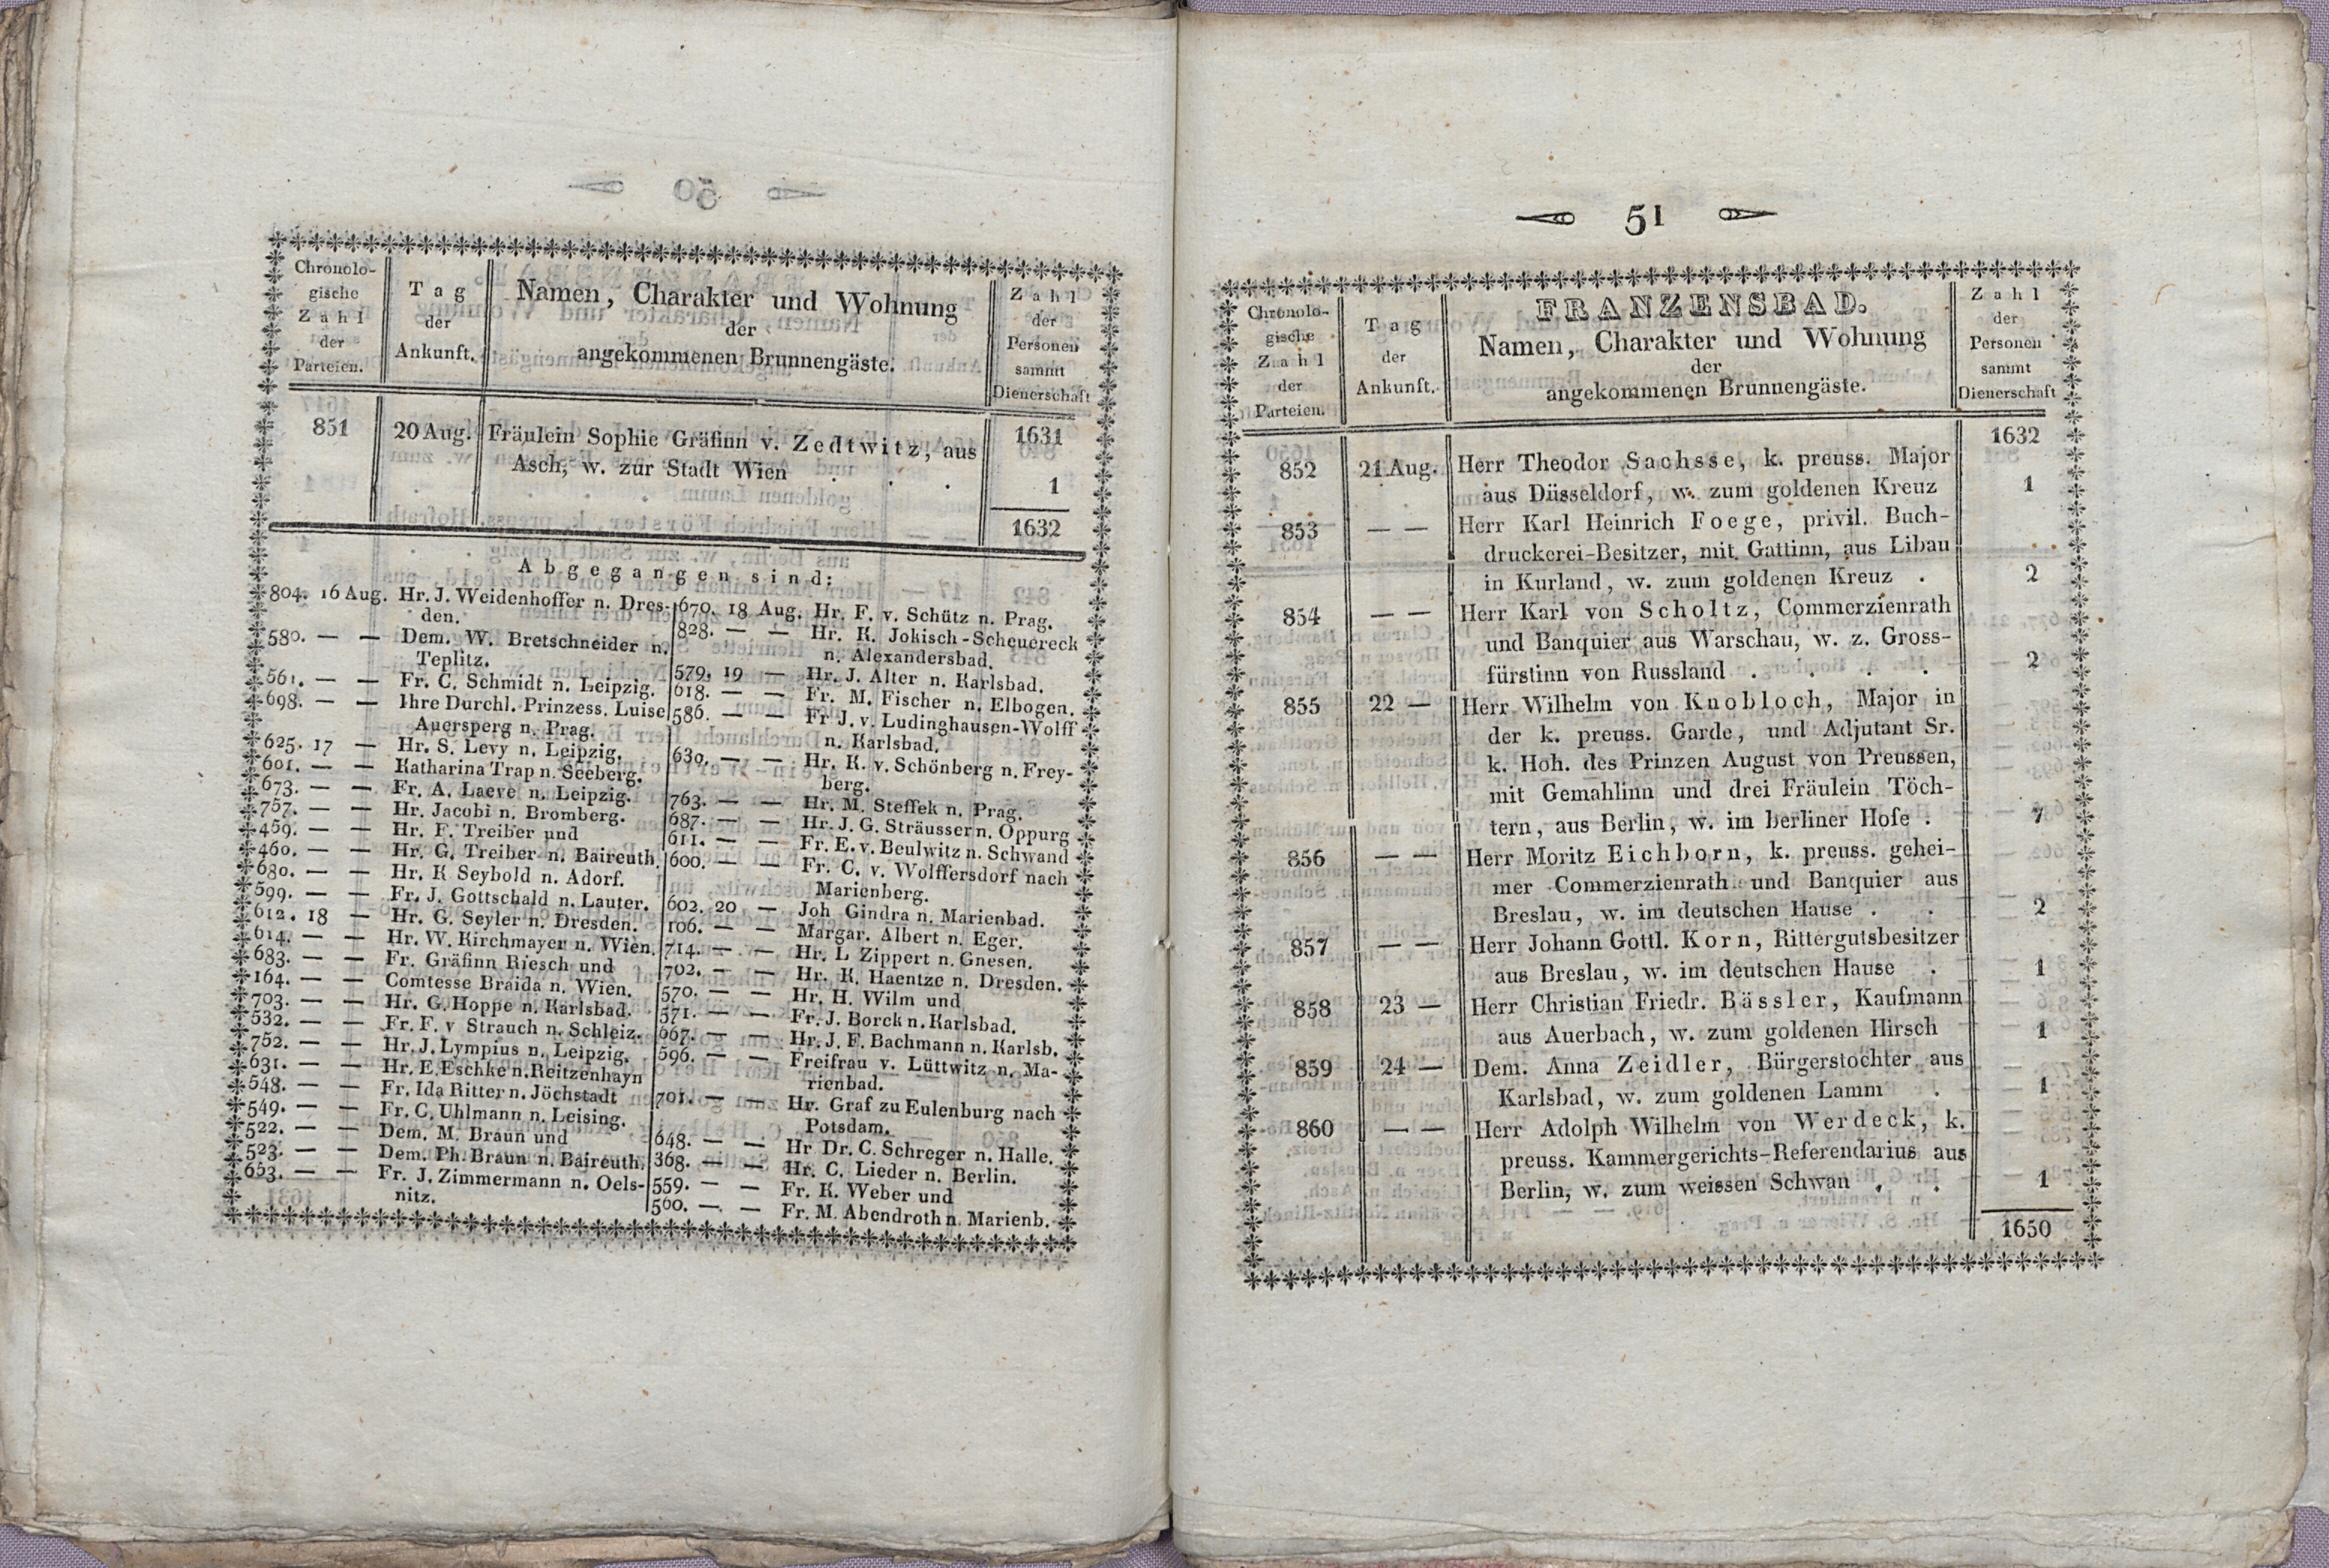 Chronolo-
gische
Zahl
der
Parteien.
Tag
der
Ankunft.
Namen, Charakter und Wohnung
der
angekommenen Brunnengäste.
Zahl
der
Personen
sammt
Dienerschaft
851 20 Aug. Fräulein Sophie Gräfinn v. Zedtwitz, aus 1631
Asch, w. zur Stadt Wien . . . 1
1632
Abgegangen sind:
804. 16 Aug. Hr. J. Weidenhoffer n. Dres-
den.
580. — — Dem. W. Bretschneider n.
Teplitz.
561. — — Fr. C. Schmidt n. Leipzig.
698. — — Ihre Durchl. Prinzess. Luise
Auersperg n. Prag.
625. 17 — Hr. S. Levy n. Leipzig.
601. — — Katharina Trap n. Seeberg.
673. — — Fr. A. Laeve n. Leipzig.
757. — — Hr. Jacobi n. Bromberg.
459. — — Hr. F. Treiber und
460. — — Hr. G. Treiber n. Baireuth.
680. — — Hr. K Seybold n. Adorf.
599. — — Fr. J. Gottschald n. Lauter.
612. 18 — Hr. G. Seyler n. Dresden.
614. — — Hr. W. Kirchmayer n. Wien.
683. — — Fr. Gräfinn Riesch und
164. — — Comtesse Braida n. Wien.
703. — — Hr. G. Hoppe n. Karlsbad.
532. — — Fr. F. v Strauch n. Schleiz.
752. — — Hr. J. Lympius n. Leipzig.
631. — — Hr. E. Eschke n. Reitzenhayn
548. — — Fr. Ida Ritter n. Jöchstadt
549. — — Fr. C. Uhlmann n. Leising.
522. — — Dem. M. Braun und
523. — — Dem. Ph. Braun n. Baireuth.
653. — — Fr. J. Zimmermann n. Oels-
nitz.
670. 18 Aug. Hr. F. v. Schütz n. Prag.
828. — — Hr. K. Jokisch-Scheuereck
n. Alexandersbad.
579. 19 — Hr. J. Alter n. Karlsbad.
618. — — Fr. M. Fischer n. Elbogen.
586. — — Fr J. v. Ludinghausen-Wolff
n. Karlsbad.
630. — — Hr. K. v. Schönberg n. Frey-
berg.
763. — — Hr. M. Steffek n. Prag.
687. — — Hr. J. G. Sträusser n. Oppurg
611. — — Fr. E. v. Beulwitz n. Schwand
600. — — Fr. C. v. Wolffersdorf nach
Marienberg.
602. 20 — Joh Gindra n. Marienbad.
106. — — Margar. Albert n. Eger.
714. — — Hr. L Zippert n. Gnesen.
702. — — Hr. K. Haentze n. Dresden.
570. — — Hr. H. Wilm und
571. — — Fr. J. Borck n. Karlsbad.
667. — — Hr. J. F. Bachmann n. Karlsb.
596. — — Freifrau v. Lüttwitz n. Ma-
rienbad.
701. — — Hr. Graf zu Eulenburg nach
Potsdam.
648. — — Hr Dr. C. Schreger n. Halle.
368. — — Hr. C. Lieder n. Berlin.
559. — — Fr. K. Weber und
560. — — Fr. M. Abendroth n. Marienb.
51
Chronolo-
gische
Zahl
der
Parteien.
Tag
der
Ankunft.
FRANZENSBAD.
Namen, Charakter und Wohnung
der
angekommenen Brunnengäste.
Zahl
der
Personen
sammt
Dienerschaft
1632
852 21 Aug. Herr Theodor Sachsse, k. preuss. Major
aus Düsseldorf, w. zum goldenen Kreuz 1
853 — — Herr Karl Heinrich Foege, privil. Buch-
druckerei-Besitzer, mit Gattinn, aus Libau
in Kurland, w. zum goldenen Kreuz . 2
854 — — Herr Karl von Scholtz, Commerzienrath
und Banquier aus Warschau, w. z. Gross-
fürstinn von Russland . . . . 2
855 22 — Herr Wilhelm von Knobloch, Major in
der k. preuss. Garde, und Adjutant Sr.
k. Hoh. des Prinzen August von Preussen,
mit Gemahlinn und drei Fräulein Töch-
tern, aus Berlin, w. im berliner Hofe . 7
856 — — Herr Moritz Eichborn, k. preuss. gehei-
mer Commerzienrath und Banquier aus
Breslau, w. im deutschen Hause . . 2
857 — — Herr Johann Gottl. Korn, Rittergutsbesitzer
aus Breslau, w. im deutschen Hause . 1
858 23 — Herr Christian Friedr. Bässler, Kaufmann
aus Auerbach, w. zum goldenen Hirsch 1
859 24 — Dem. Anna Zeidler, Bürgerstochter aus
Karlsbad, w. zum goldenen Lamm . 1
860 — — Herr Adolph Wilhelm von Werdeck, k.
preuss. Kammergerichts-Referendarius aus
Berlin, w. zum weissen Schwan . . 1
1650